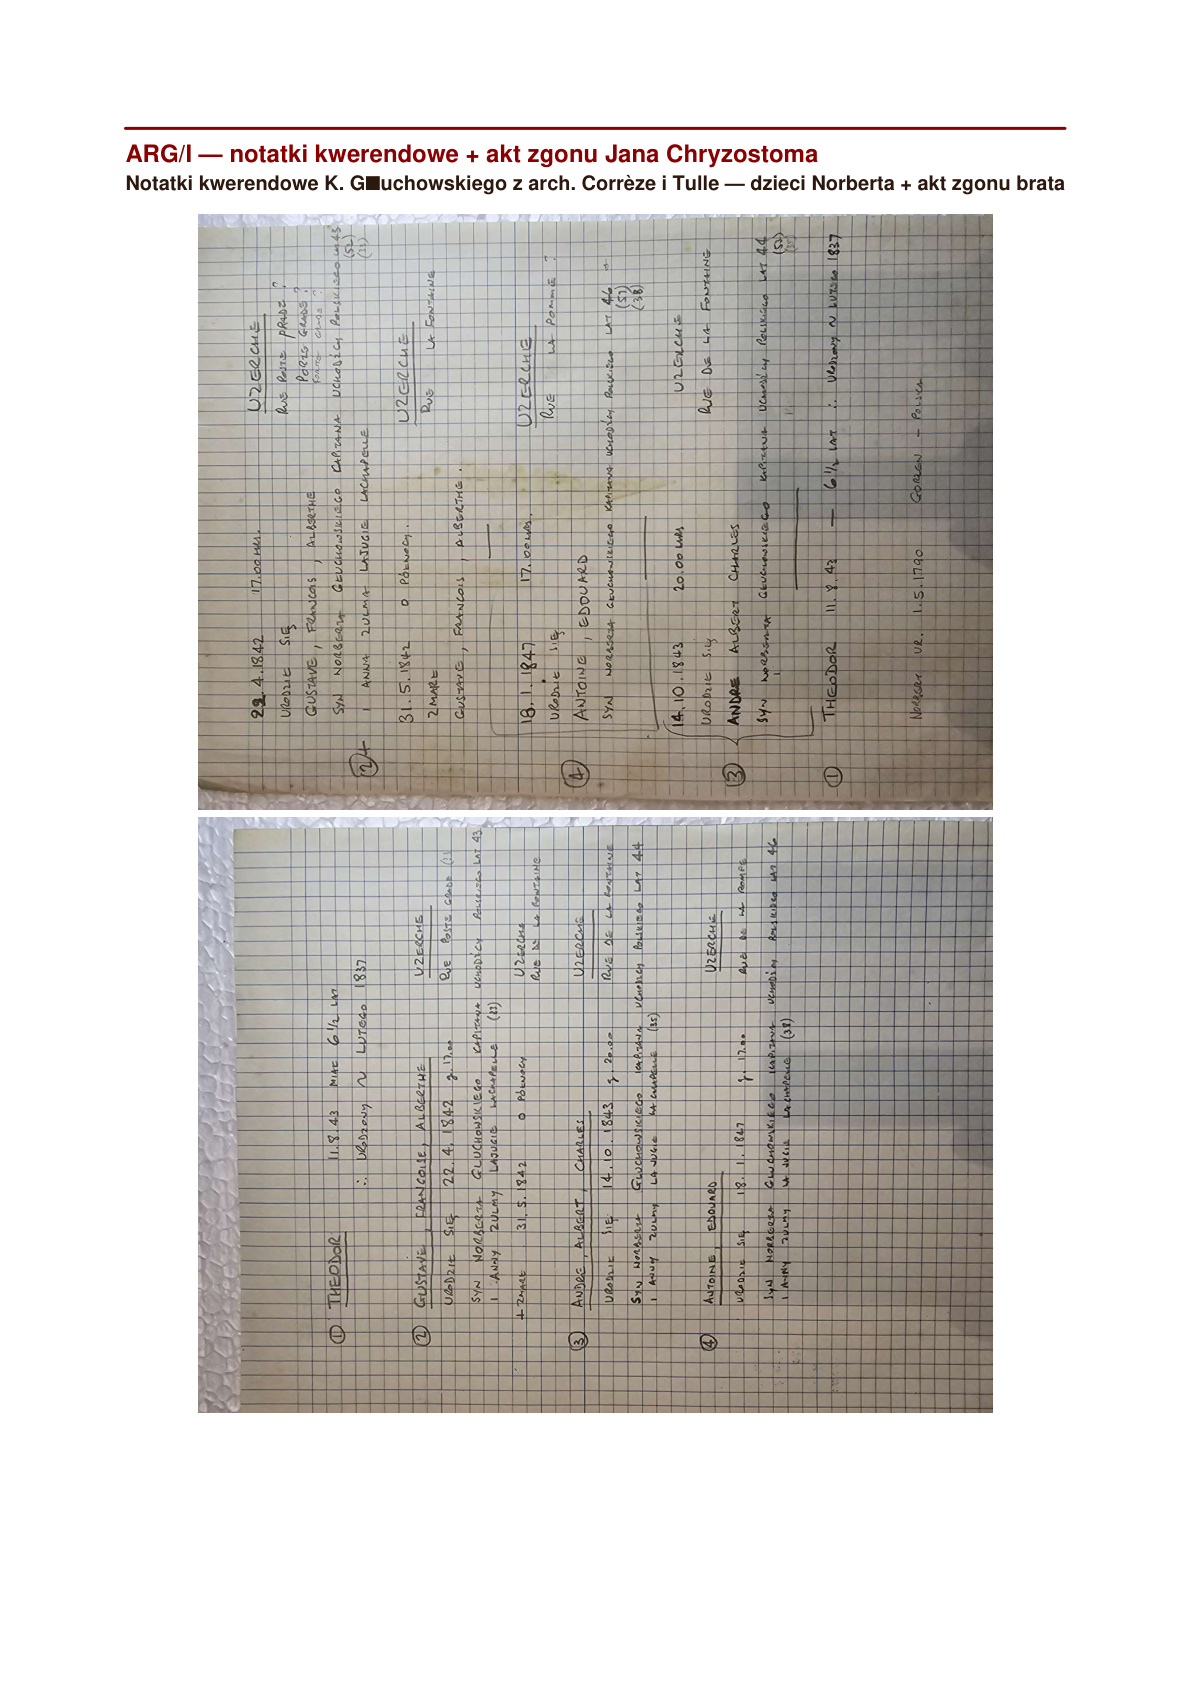 ARG/I — notatki kwerendowe + akt zgonu Jana Chryzostoma
Notatki kwerendowe K. G■uchowskiego z arch. Corrèze i Tulle — dzieci Norberta + akt zgonu brata
22.4.1842 17.00 HRS. UZERCHE
URODZIŁ SIĘ RUE POSTE PRADE ?
PORTE GRADE ?
GUSTAVE, FRANCOIS, ALBERTHE
SYN NORBERTA GŁUCHOWSKIEGO KAPITANA UCHODŹCY POLSKIEGO LAT 43
(52)
② + I ANNA ZULMA LAJUGIE LACHAPELLE (33)
31.5.1842 O PÓŁNOCY. UZERCHE
ZMARŁ RUE LA FONTAINE
GUSTAVE, FRANCOIS, ALBERTHE.
18.1.1847 17.00 HRS. UZERCHE
URODZIŁ SIĘ RUE LA POMME ?
④ ANTOINE, EDOUARD
SYN NORBERTA GŁUCHOWSKIEGO KAPITANA UCHODŹCY POLSKIEGO LAT 46
(57)
(38)
14.10.1843 20.00 HRS UZERCHE
URODZIŁ SIĘ RUE DE LA FONTAINE
③ ANDRE ALBERT CHARLES
SYN NORBERTA GŁUCHOWSKIEGO KAPITANA UCHODŹCY POLSKIEGO LAT 44
(53)
(35)
① THEODOR 11.8.43 — 6 1/2 LAT ∴ URODZONY ~ LUTEGO 1837
NORBERT UR. 1.5.1790 GORZEN - POLSKA
① THEODOR 11.8.43 MIAŁ 6 1/2 LAT
∴ URODZONY ~ LUTEGO 1837
② GUSTAVE, FRANCOISE, ALBERTHE UZERCHE
URODZIŁ SIĘ 22.4.1842 g. 17.00 RUE POSTE GRADE
SYN NORBERTA GŁUCHOWSKIEGO KAPITANA UCHODŹCY POLSKIEGO LAT 43
I ANNY ZULMY LAJUGIE LACHAPELLE (33)
+ ZMARŁ 31.5.1842 O PÓŁNOCY UZERCHE
RUE DE LA FONTAINE
③ ANDRE, ALBERT, CHARLES UZERCHE
URODZIŁ SIĘ 14.10.1843 g. 20.00 RUE DE LA FONTAINE
SYN NORBERTA GŁUCHOWSKIEGO KAPITANA UCHODŹCY POLSKIEGO LAT 44
I ANNY ZULMY LA JUGIE LA CHAPELLE (35)
④ ANTOINE, EDOUARD UZERCHE
URODZIŁ SIĘ 18.1.1847 g. 17.00 RUE DE LA POMPE
SYN NORBERTA GŁUCHOWSKIEGO KAPITANA UCHODŹCY POLSKIEGO LAT 46
I ANNY ZULMY LA JUGIE LA CHAPELLE (38)